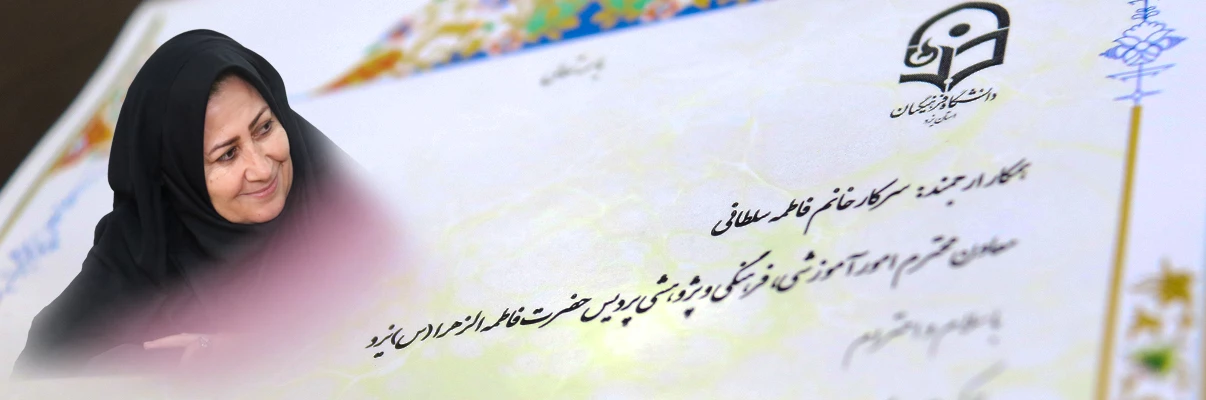 دانشگاه فرهنگیان
استان یزد
همکار ارجمند: سرکار خانم فاطمه سلطانی
معاون محترم امور آموزشی، فرهنگی و پژوهشی پردیس حضرت فاطمه الزهرا(س) یزد
با سلام و احترام